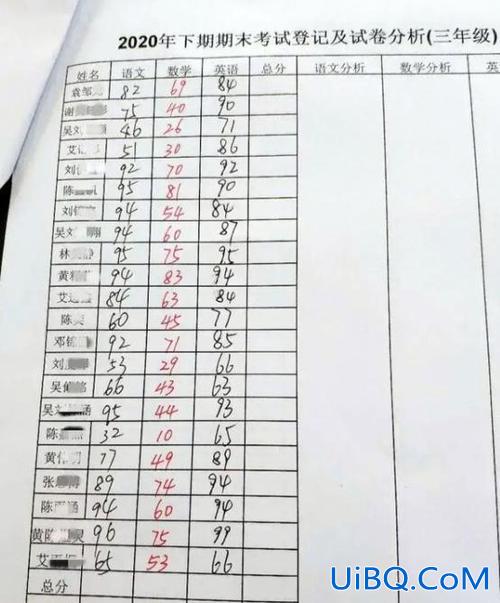 2020年下期期末考试登记及试卷分析(三年级)
姓名 语文 数学 英语 总分 语文分析 数学分析 英
袁邹 82 69 84
谢 75 40 90
吴刘 46 26 71
艾 51 30 86
刘 92 70 92
陈 95 81 90
刘 94 54 84
吴刘 94 60 87
林 95 75 95
黄 94 83 94
艾 84 63 84
陈 60 45 77
邓 92 71 85
刘 53 29 66
吴 66 43 63
吴刘 涵 95 44 93
陈 32 10 65
黄 77 49 89
张 89 74 94
陈 涵 94 60 94
黄陈 灵 96 75 99
艾 65 53 66
总分
UiBQ.CoM